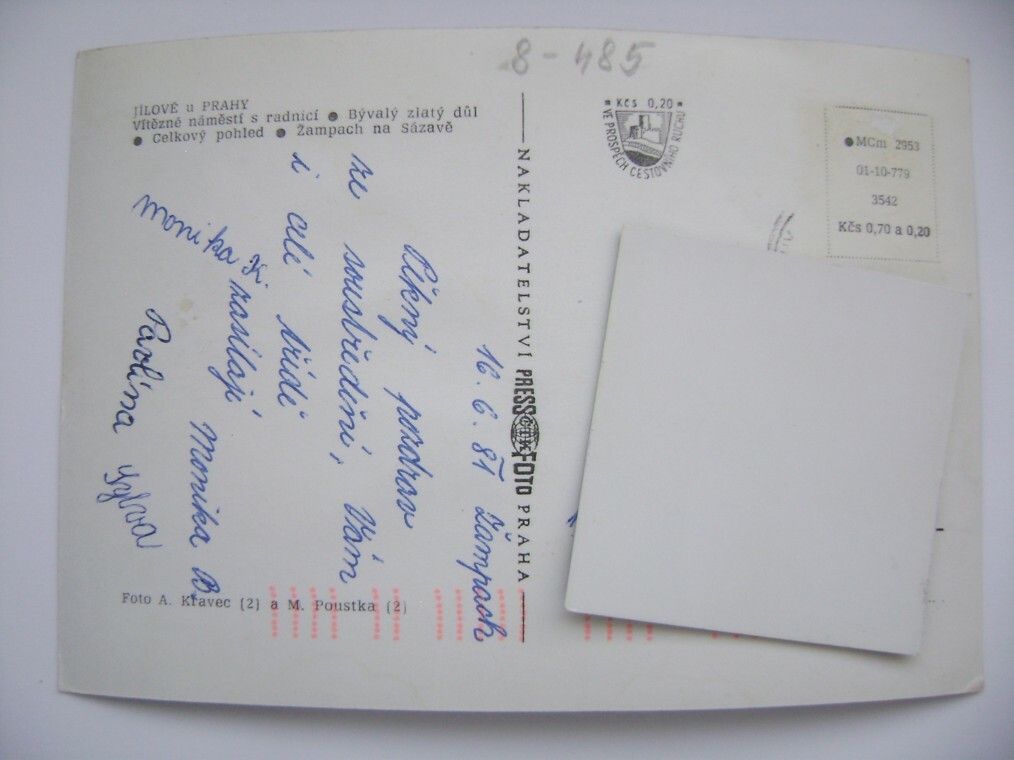 8-485
JÍLOVÉ u PRAHY
Vítězné náměstí s radnicí ● Bývalý zlatý důl
● Celkový pohled ● Žampach na Sázavě
16. 6. 81 Žampach
Pěkný pozdrav
ze soustředění, Vám
i celé třídě
zasílají
Monika B.
Monika K.
Pavlína
Sylva
Foto A. Kravec (2) a M. Poustka (2)
NAKLADATELSTVÍ PRESSFOTO PRAHA
• Kčs 0,20 •
VE PROSPĚCH CESTOVNÍHO RUCHU
●MCm 2953
01-10-779
3542
Kčs 0,70 a 0,20